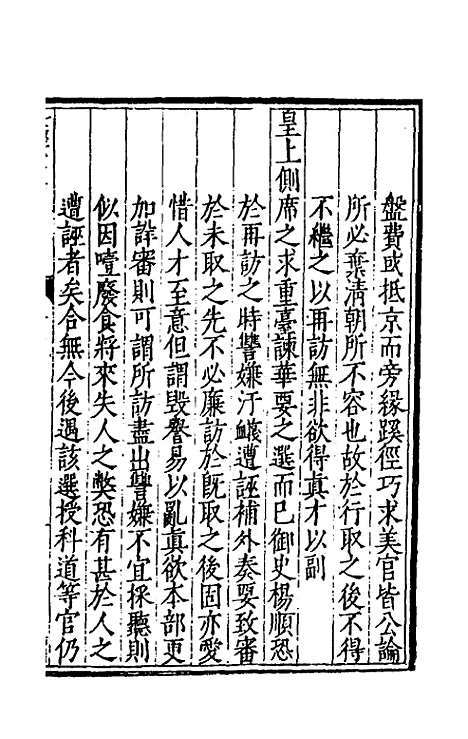 盤費或抵京而旁緣蹊徑巧求美官皆公論
所必棄清朝所不容也故於行取之後不得
不繼之以再訪無非欲得真才以副
皇上側席之求重臺諫華要之選而已御史楊順恐
於再訪之時讐嫌汙衊遭誣補外奏要致審
於未取之先不必廉訪於旣取之後固亦愛
惜人才至意但謂毀譽易以亂真欲本部更
加詳審則可謂所訪盡出讐嫌不宜採聽則
似因噎廢食將來失人之獘恐有甚於人之
遭誣者矣合無今後遇該選授科道等官仍